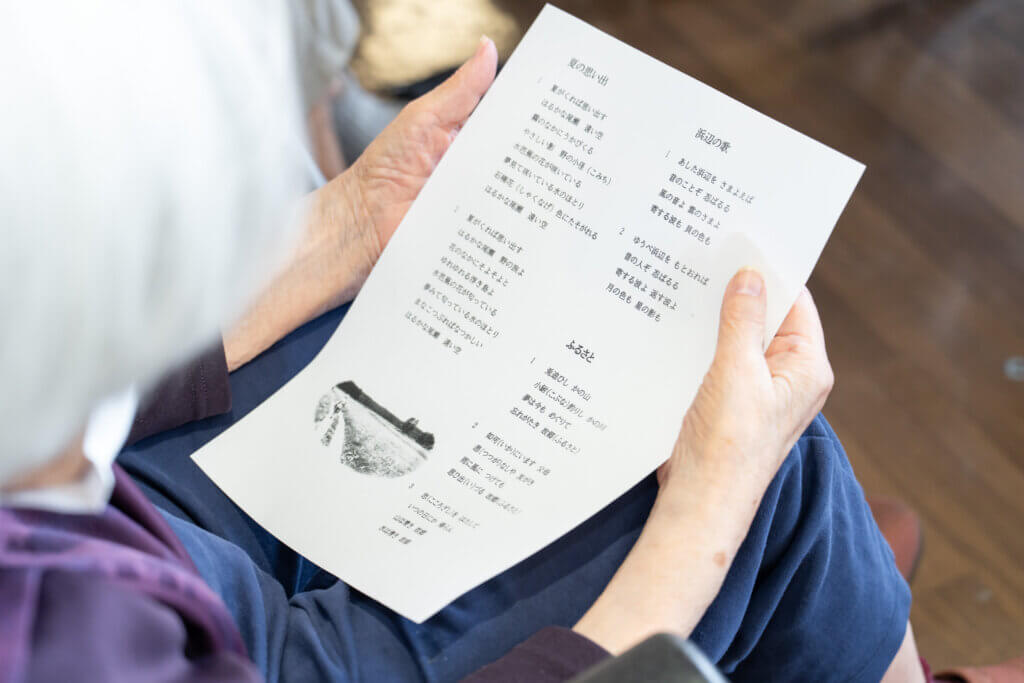 夏の思い出
1
夏がくれば思い出す
はるかな尾瀬 遠い空
霧のなかにうかびくる
やさしい影 野の小径(こみち)
水芭蕉の花が咲いている
夢見て咲いている水のほとり
石楠花(しゃくなげ)色にたそがれる
はるかな尾瀬 遠い空
2
夏がくれば思い出す
はるかな尾瀬 野の旅よ
花のなかにそよそよと
ゆれゆれる浮き島よ
水芭蕉の花が匂っている
夢みて匂っている水のほとり
まなこつぶればなつかしい
はるかな尾瀬 遠い空
浜辺の歌
1 あした浜辺を さまよえば
昔のことぞ 忍ばるる
風の音よ 雲のさまよ
寄する波も 貝の色も
2 ゆうべ浜辺を もとおれば
昔の人ぞ 忍ばるる
寄する波よ 返す波よ
月の色も 星の影も
ふるさと
1 兎追ひし かの山
小鮒(こぶな)釣りし かの川
夢は今も めぐりて
忘れがたき 故郷(ふるさと)
2 如何(いか)にいます 父母
恙(つつが)なしや 友がき
雨に風に つけても
思ひ出(い)づる 故郷(ふるさと)
3 志(こころざし)を はたして
いつの日にか 帰らん
山は青き 故郷
水は清き 故郷